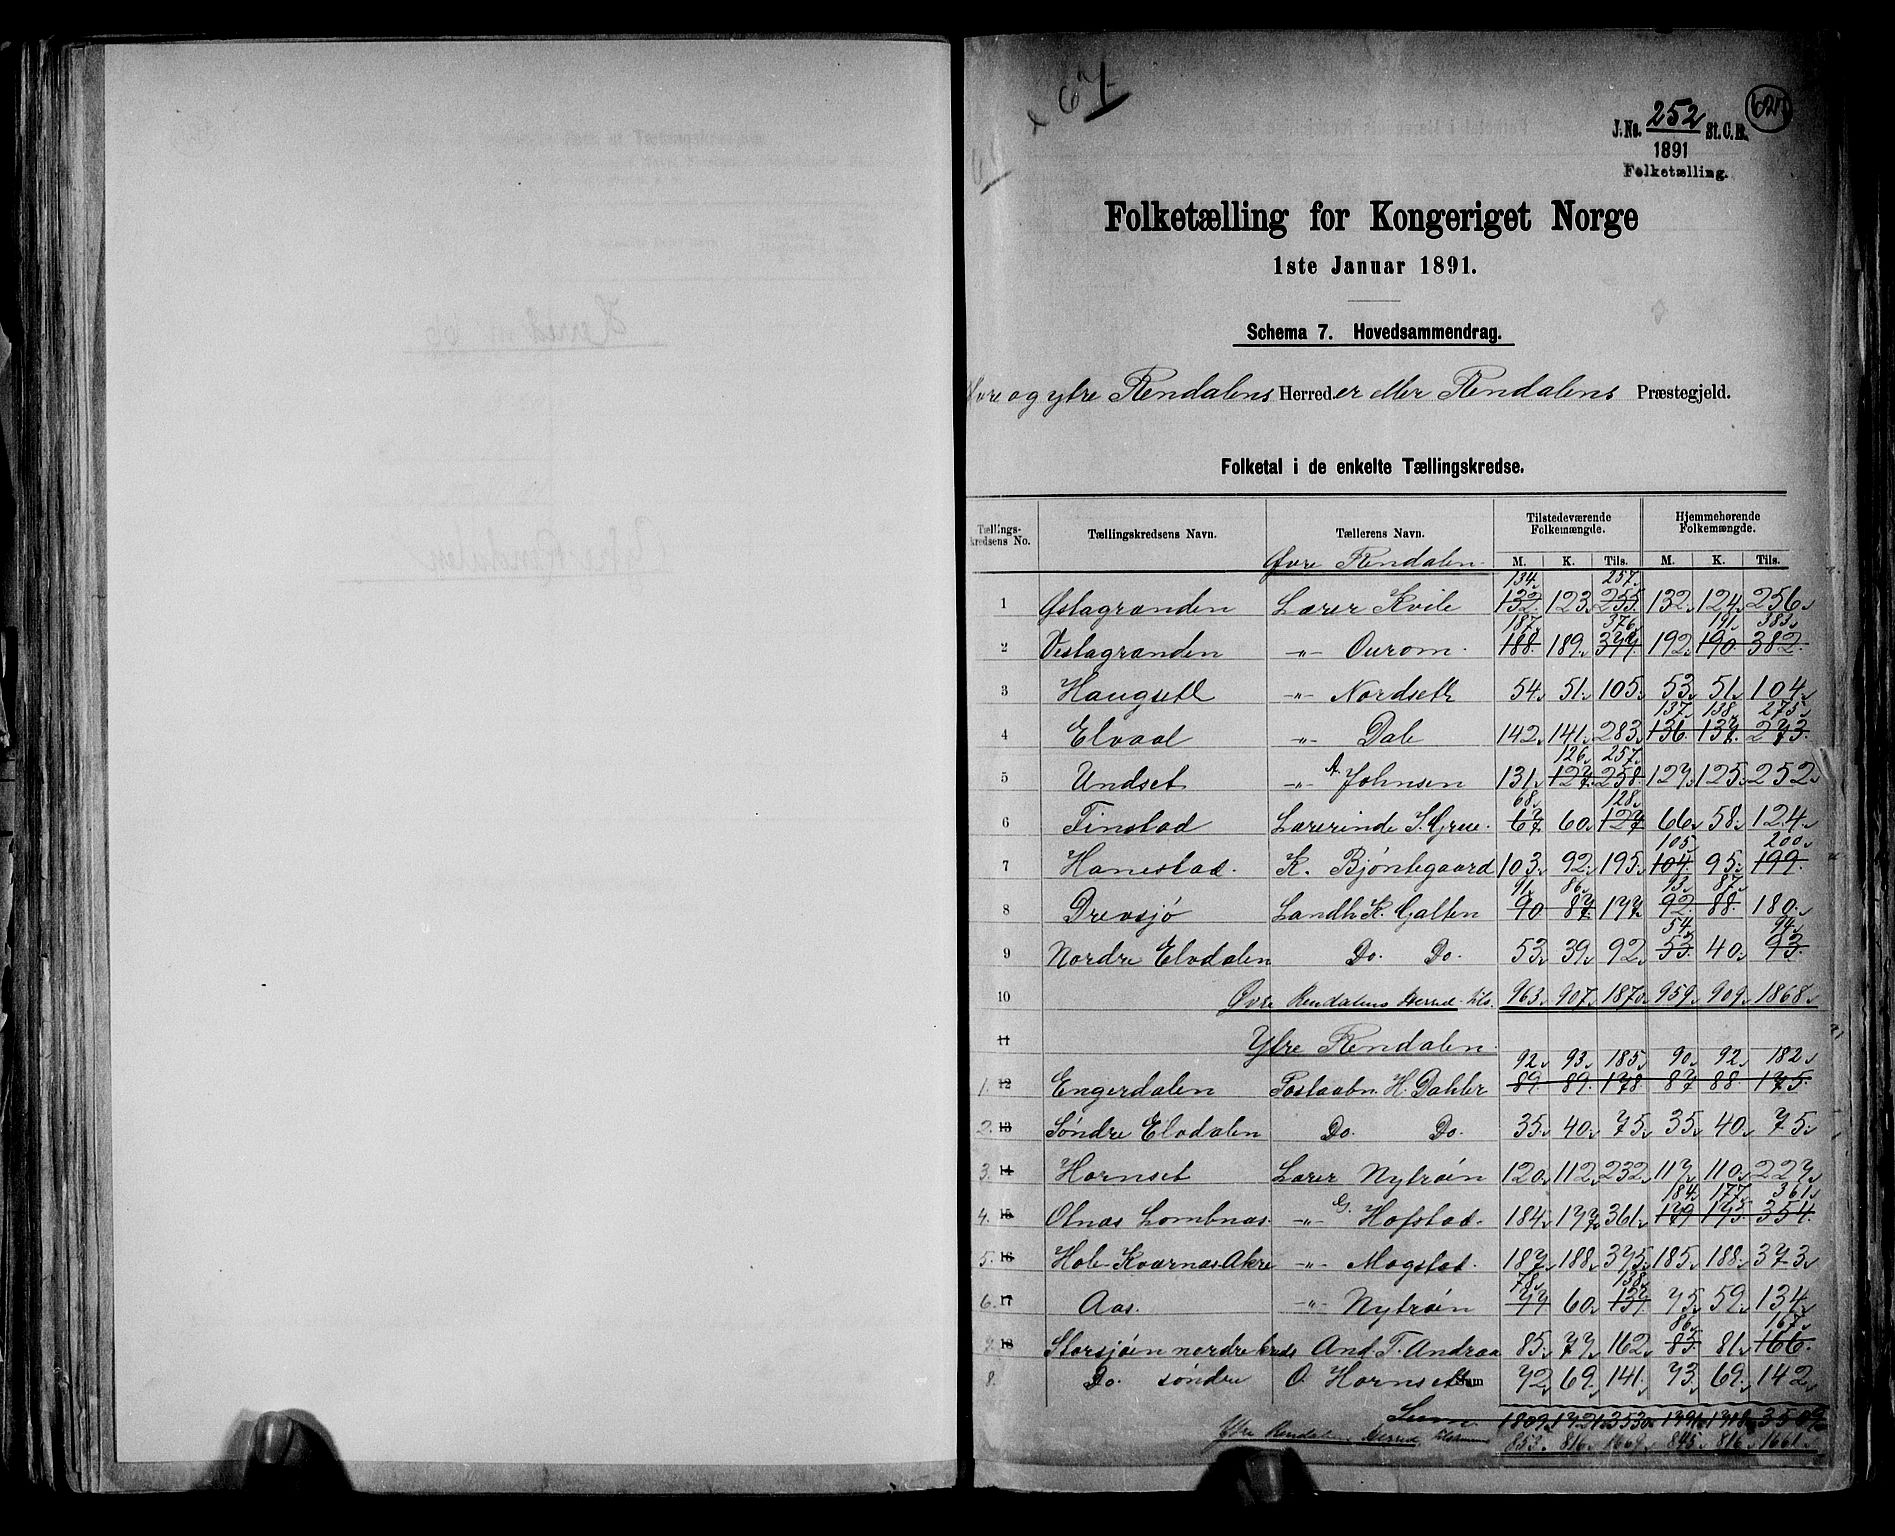 67
J.No. 252 St.C.B.
1891
Folketælling.
Folketælling for Kongeriget Norge
1ste Januar 1891.
Schema 7. Hovedsammendrag.
Øvre og ytre Rendalens Herreder eller Rendalens Præstegjeld.
Folketal i de enkelte Tællingskredse.
Tællingskredsens No. Tællingskredsens Navn. Tællerens Navn. Tilstedeværende Folkemængde. Hjemmehørende Folkemængde.
Øvre Rendalen. M. K. Tils. M. K. Tils.
134 257
1 Østagrænden Lærer Kvile 132 123 255 132 124 256
187 376 191 383
2 Vestagrænden -"- Ourom. 188 189 377 192 190 382
3 Haugsett -"- Nordseth 54 51 105 53 51 104
137 138 275
4 Elvaal -"- Dale 142 141 283 136 137 273
126 257
5 Undset -"- A. Johnsen 131 127 258 127 125 252
68 128
6 Finstad Lærerinde S. Grue. 67 60 127 66 58 124
105 200
7 Hanestad. K. Bjøntegaard 103 92 195 104 95 199
91 86 93 87
8 Drevsjø Landh. K. Galten 90 87 177 92 88 180
54 94
9 Nordre Elvdalen Do. Do. 53 39 92 53 40 93
10 Øvre Rendalens Herred Tils. 963 907 1870 959 909 1868
11 Ytre Rendalen.
92 93 185 90 92 182
1. 12 Engerdalen Postaabn. H. Dahler 89 89 178 87 88 175
2. 13 Søndre Elvdalen Do. Do. 35 40 75 35 40 75
3. 14 Hornset Lærer Nytrøin 120 112 232 117 110 227
184 177 361
4. 15 Otnæs Lombnæs -"- G. Hofstad. 184 177 361 179 175 354
5. 16 Hole Kværnæs Akre -"- Mogstad. 187 188 375 185 188 373
78 138
6. 17 Aas. -"- Nytrøin 77 60 137 75 59 134
86 167
7. 18 Storsjøen nordre kreds And. T. Andraa 85 77 162 85 81 166
8. Do. søndre O. Hornseth Sum 72 69 141 73 69 142
Sum
Ytre Rendalens Herred tilsammen 853 816 1669 845 816 1661